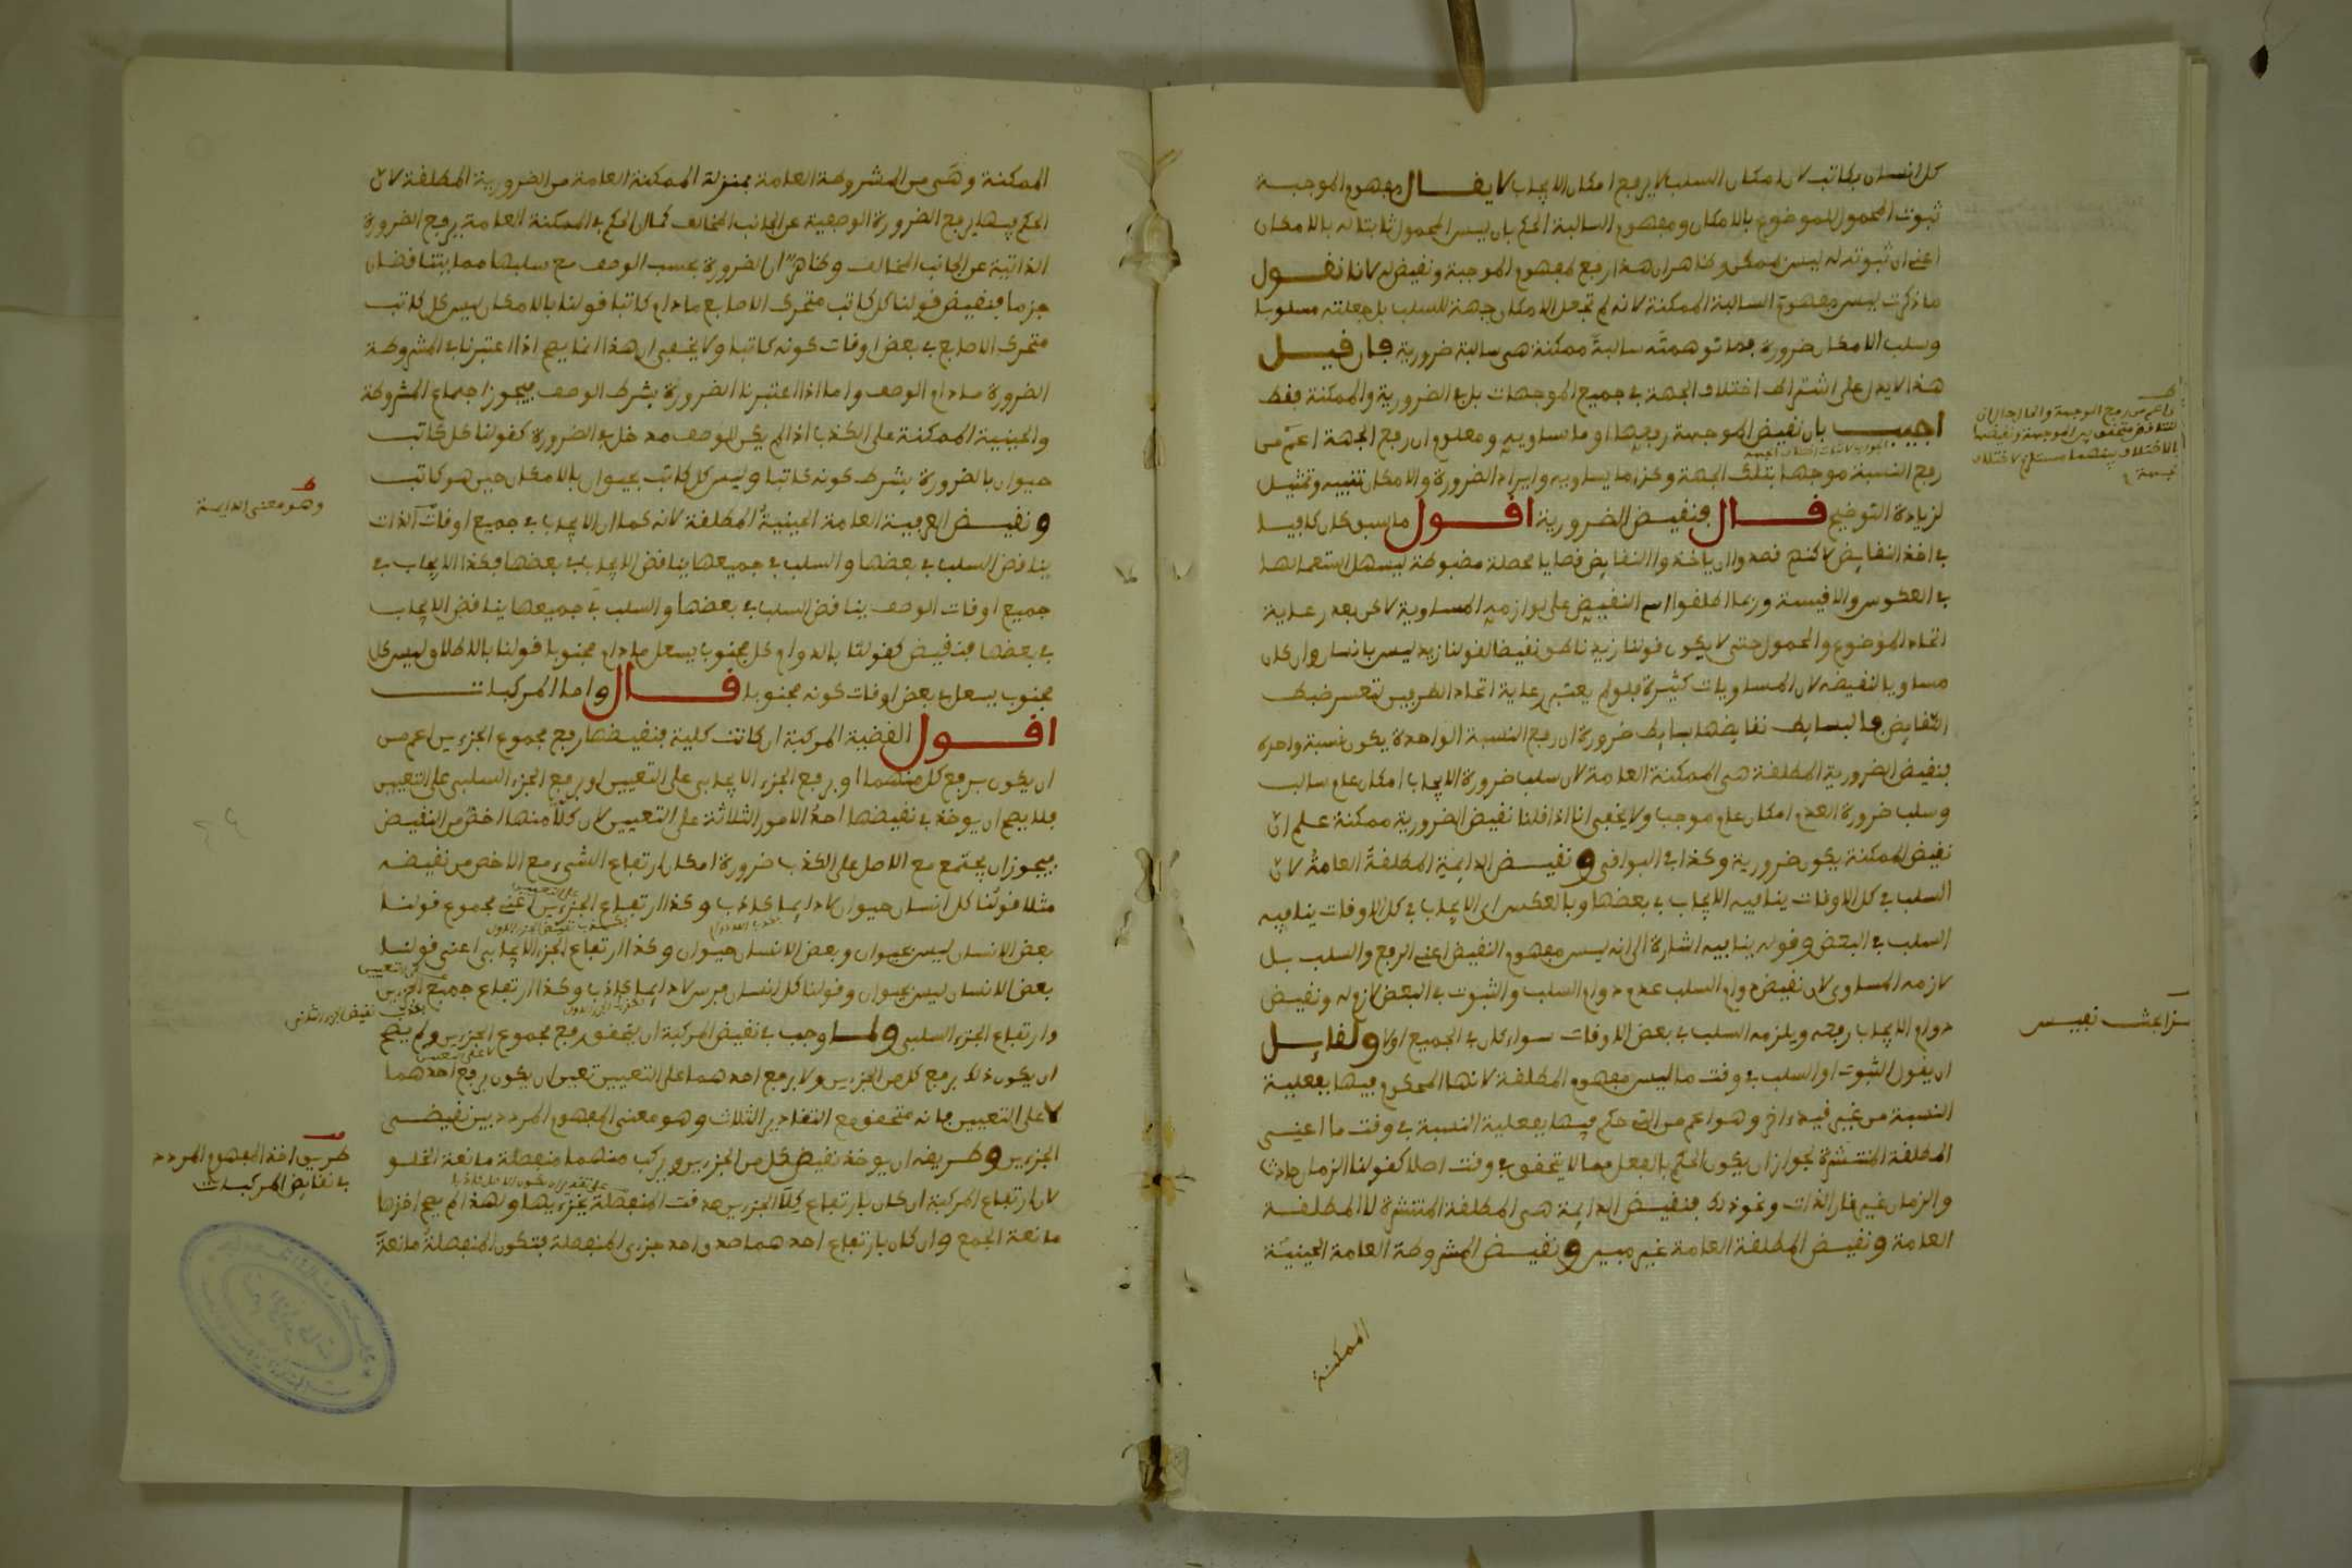 كل انسان بكاتب لان امكان السلب لا يرفع امكان الايجاب لا يقال مفهوم الموجبة
ثبوت المحمول للموضوع بالامكان ومفهوم السالبة الحكم بان ليس المحمول ثابتا له بالامكان
اعني ان ثبوته له ليس بممكن وظاهر ان هذا رفع لمفهوم الموجبة ونقيض له لانا نقول
ما ذكرت ليس مفهوم السالبة الممكنة لانه لم تجعل الامكان جهة للسلب بل جعلته مسلوبا
وسلب الامكان ضرورة فما توهمته سالبة ممكنة هي سالبة ضرورية فان قيل
هذا لا يدل على اشتراط اختلاف الجهة في جميع الموجهات بل في الضرورية والممكنة فقط
اجيب بان نقيض الموجهة رفعها او ما يساويه ومعلوم ان رفع الجهة اعم من
رفع النسبة موجها بتلك الجهة وكذا ما يساويه وايراد الضرورة والامكان تنبيه وتمثيل
لزيادة التوضيح قال فنقيض الضرورية اقول ما سبق كان كافيا
في اخذ النقايض لاكنهم قصدوا ان ياخذوا النقايض قضايا محصلة مضبوطة ليسهل استعمالها
في العكوس والاقيسة وربما اطلقوا اسم النقيض على لوازمه المساوية لاكن بعد رعاية
اتحاد الموضوع والمحمول حتى لا يكون قولنا زيد ناطق نقيضا لقولنا زيد ليس بانسان وان كان
مساويا لنقيضه لان المساويات كثيرة فلو لم يعتبر رعاية اتحاد الطرفين لتعسر ضبط
النقايض فالبسايط نقايضها بسايط ضرورة ان رفع النسبة الواحدة يكون نسبة واحدة
فنقيض الضرورية المطلقة هي الممكنة العامة لان سلب ضرورة الايجاب امكان عام سالب
وسلب ضرورة العدم امكان عام موجب ولا يخفى انا اذا قلنا نقيض الضرورية ممكنة علم ان
نقيض الممكنة يكون ضرورية وكذا في البواقي ونقيض الدايمة المطلقة العامة لان
السلب في كل الاوقات ينافيه الايجاب في بعضها وبالعكس اي الايجاب في كل الاوقات ينافيه
السلب في البعض وقوله ينافيه اشارة الى انه ليس مفهوم النقيض اعني الرفع والسلب بل
لازمه المساوي لان نقيض دوام السلب عدم دوام السلب والثبوت في البعض لازم له ونقيض
دوام الايجاب رفعه ويلزمه السلب في بعض الاوقات سواء كان في الجميع اولا ولقايل
ان يقول الثبوت او السلب في وقت ما ليس مفهوم المطلقة لانها المحكوم فيها بفعلية
النسبة من غير قيد اخر وهو اعم من التي حكم فيها بفعلية النسبة في وقت ما اعني
المطلقة المنتشرة لجواز ان يكون الحكم بالفعل مما لا يتحقق في وقت اصلا كقولنا الزمان حادث
والزمان غير قار الذات ونحو ذلك فنقيض الدايمة هي المطلقة المنتشرة لا المطلقة
العامة ونقيض المطلقة العامة غير مبين ونقيض المشروطة العامة الحينية
الممكنة
الممكنة وهي من المشروطة العامة بمنزلة الممكنة العامة من الضرورية المطلقة لان
الحكم فيها برفع الضرورة الوصفية عن الجانب المخالف كما ان الحكم في الممكنة العامة برفع الضرورة
الذاتية عن الجانب المخالف وظاهر ان الضرورة بحسب الوصف مع سلبها مما يتناقضان
جزما فنقيض قولنا كل كاتب متحرك الاصابع ما دام كاتبا قولنا بالامكان ليس كل كاتب
متحرك الاصابع في بعض اوقات كونه كاتبا ولا يخفى ان هذا انما يصح اذا اعتبرنا في المشروطة
الضرورة ما دام الوصف واما اذا اعتبرنا الضرورة بشرط الوصف فيجوز اجتماع المشروطة
والحينية الممكنة على الكذب اذا لم يكن للوصف مدخل في الضرورة كقولنا كل كاتب
حيوان بالضرورة بشرط كونه كاتبا وليس كل كاتب بحيوان بالامكان حين هو كاتب
ونقيض العرفية العامة الحينية المطلقة لانه كما ان الايجاب في جميع اوقات الذات
يناقض السلب في بعضها والسلب في جميعها يناقض الايجاب في بعضها فكذا الايجاب في
جميع اوقات الوصف يناقض السلب في بعضها والسلب في جميعها يناقض الايجاب
في بعضها فنقيض كقولنا بالدوام كل مجنوب يسعل ما دام مجنوبا قولنا بالاطلاق ليس كل
مجنوب يسعل في بعض اوقات كونه مجنوبا قال واما المركبات
اقول القضية المركبة ان كانت كلية فنقيضها رفع مجموع الجزءين اعم من
ان يكون برفع كل منهما او برفع الجزء الايجابي على التعيين او برفع الجزء السلبي على التعيين
فلا يصح ان يوخذ في نقيضها احد الامور الثلاثة على التعيين لان كلا منها اخص من النقيض
فيجوز ان يجتمع مع الاصل على الكذب ضرورة امكان ارتفاع الشيء مع الاخص من نقيضه
مثلا قولنا كل انسان حيوان لا دايما كاذب وكذا ارتفاع الجزءين اعني مجموع قولنا
بعض الانسان ليس بحيوان وبعض الانسان حيوان وكذا ارتفاع الجزء الايجابي اعني قولنا
بعض الانسان ليس بحيوان وقولنا كل انسان فرس لا دايما كاذب وكذا ارتفاع جميع الجزءين
وارتفاع الجزء السلبي ولما وجب في نقيض المركبة ان يتحقق رفع مجموع الجزءين ولم يصح
ان يكون ذلك برفع كل من الجزءين ولا برفع احدهما على التعيين تعين ان يكون برفع احدهما
لا على التعيين فانه متحقق مع التقادير الثلاث وهو معنى المفهوم المردد بين نقيضي
الجزءين وطريقه ان يوخذ نقيض كل من الجزءين ويركب منهما منفصلة مانعة الخلو
لان ارتفاع المركبة ان كان بارتفاع كلا الجزءين صدقت المنفصلة بجزءيها ولهذا لم يصح اخذها
مانعة الجمع وان كان بارتفاع احدهما صدق احد جزءي المنفصلة فتكون المنفصلة مانعة
وهو معنى الدايمة
طريق اخذ المفهوم المردد
في نقايض المركبات